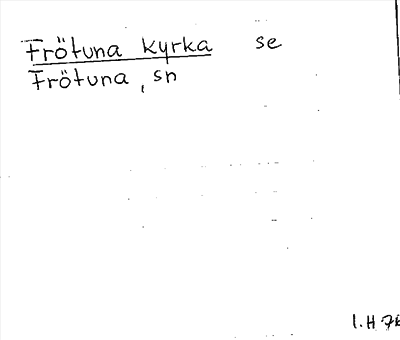 Frötuna kyrka se
Frötuna, sn
I.H 76